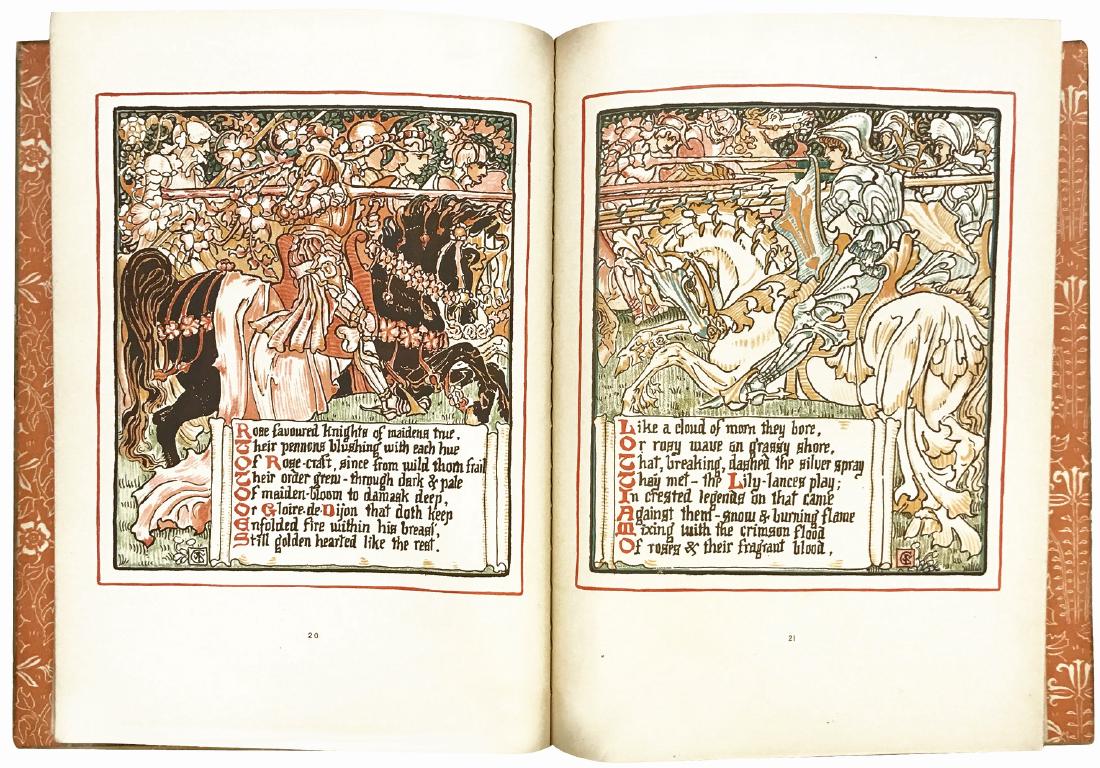 Rose favoured Knights of maidens true,
Their pennons blushing with each hue
Of Rose-craft, since from wild thorn frail
Their order grew - through dark & pale
Of maiden-bloom to damask deep,
Or Gloire-de-Dijon that doth keep
Enfolded fire within his breast,
Still golden hearted like the rest.
20
Like a cloud of morn they bore,
Or rosy wave on grassy shore,
That, breaking, dashed the silver spray
They met - the Lily-lances play;
In crested legends on that came
Against them - snow & burning flame
Mixing with the crimson flood
Of roses & their fragrant blood,
21